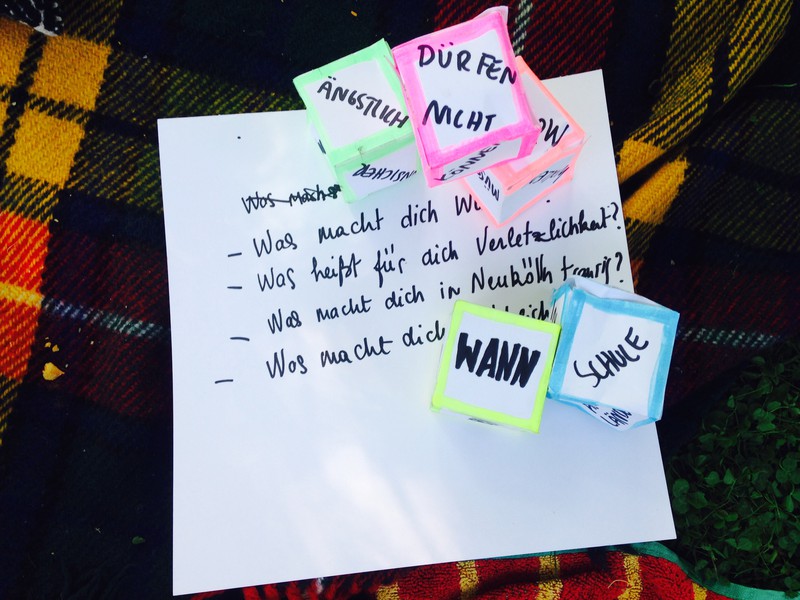 ÄNGSTLICH
DÜRFEN
NICHT
KÖNNEN
Was macht
– Was macht dich ?
– Was heißt für dich Verletzlichkeit?
– Was macht dich in Neukölln traurig?
– Was macht dich
WANN
SCHULE